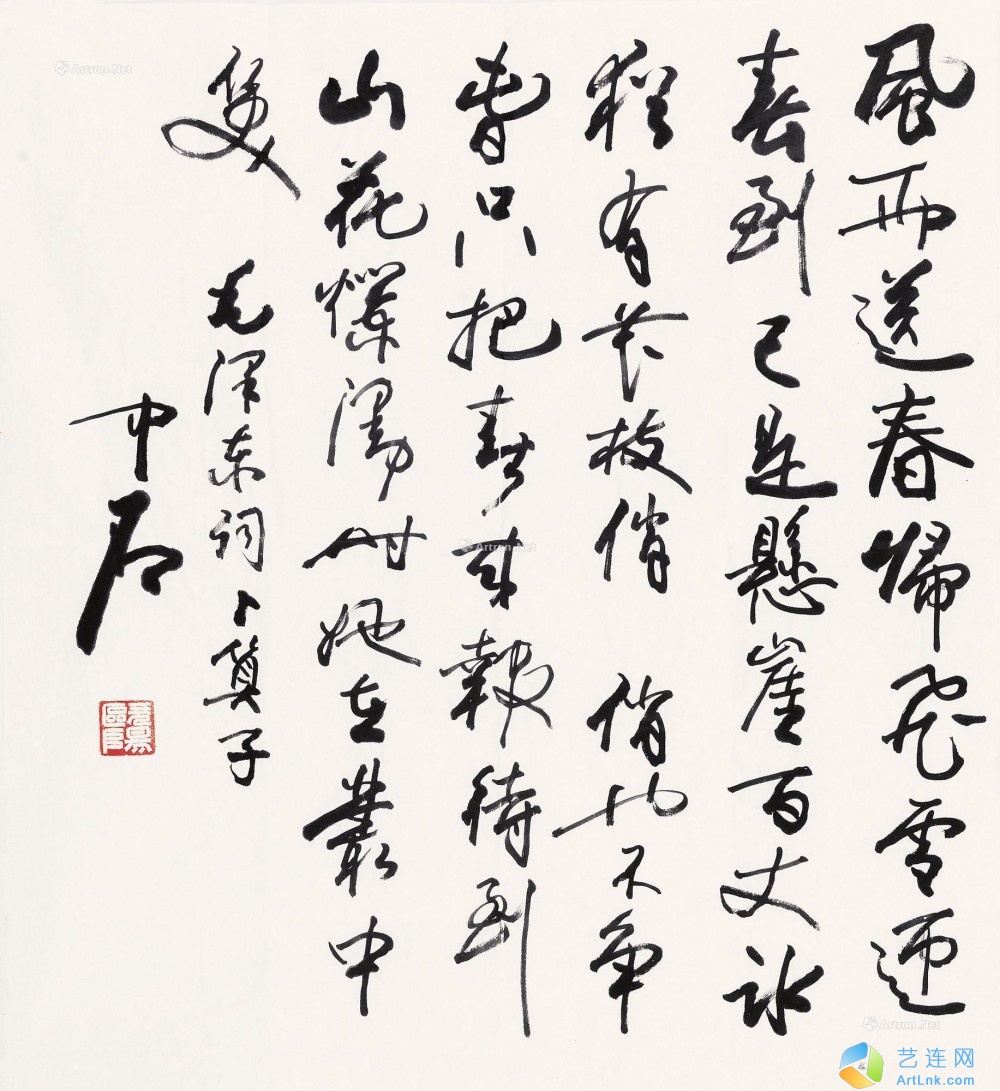 風雨送春歸飛雪迎
春到已是懸崖百丈冰
猶有花枝俏 俏也不争
春只把春来報待到
山花爛漫时她在叢中
笑 毛泽东词卜算子
中石
Artron.Net
Artron.Net
Artron.Net
艺连网
ArtLnk.com